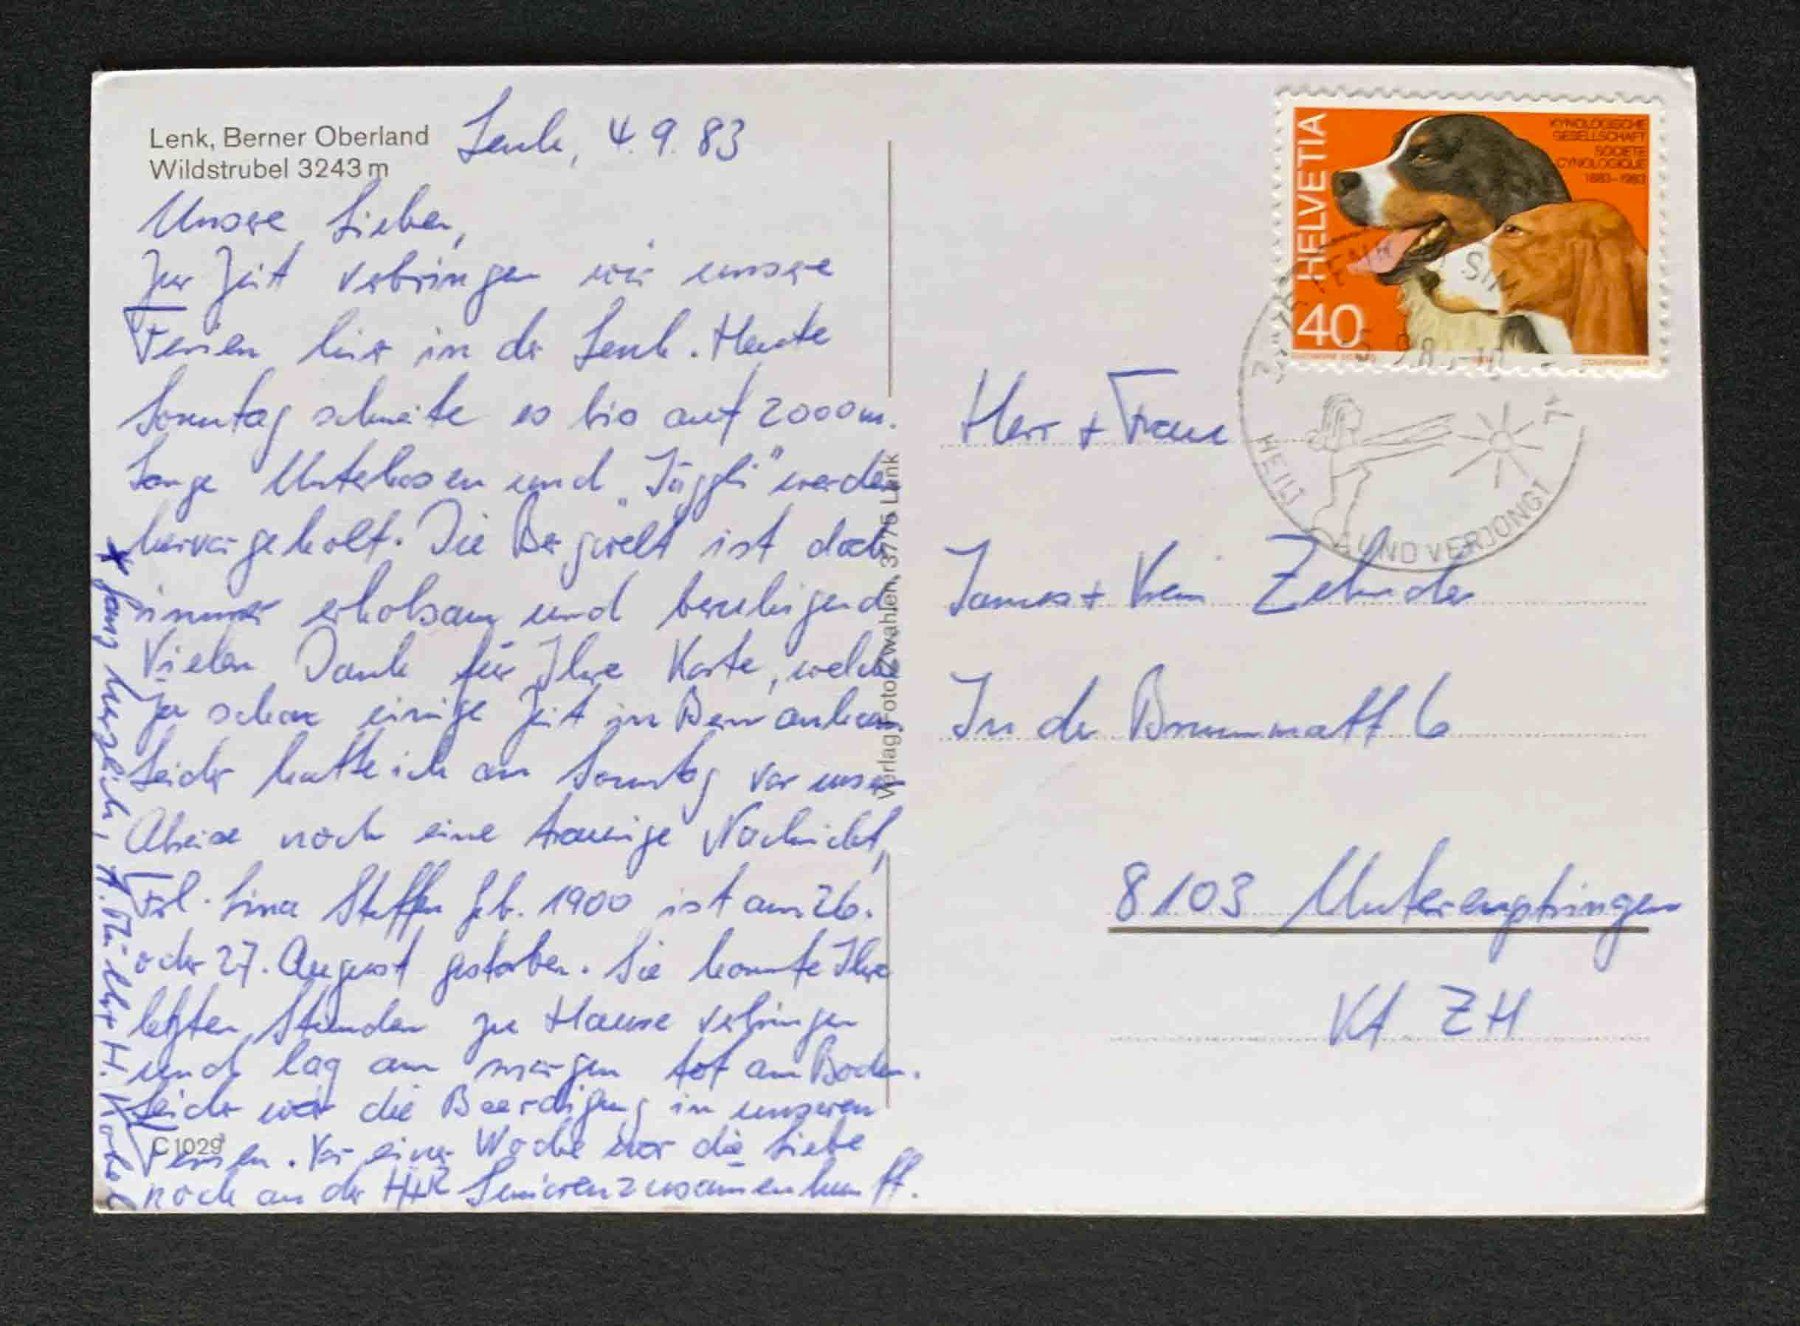 Lenk, Berner Oberland
Wildstrubel 3243 m
Lenk, 4.9.83
Unsere Lieben,
Zur Zeit verbringen wir unsere
Ferien hier in der Lenk. Heute
Sonntag schneite es bis auf 2000 m.
Lange Unterhosen und "Jäggli" werden
hervorgeholt. Die Bergwelt ist doch
immer erholsam und beruhigend
Vielen Dank für Ihre Karte, welche
ja schon einige Zeit in Bern ankam
Leider hatte ich am Sonntag vor unser
Abreise noch eine traurige Nachricht,
Frl. Lina Steffen geb. 1900 ist am 26.
oder 27. August gestorben. Sie konnte Ihre
letzten Stunden zu Hause verbringen
und lag am morgen tot am Boden.
Leider war die Beerdigung in unseren
Ferien. Vor einer Woche war die Liebe
noch an der Seniorenzusammenkunft.
* ganz herzlich,
C 1029
Verlag Foto Zwahlen, 3775 Lenk
HELVETIA
40
KYNOLOGISCHE
GESELLSCHAFT
SOCIETE
CYNOLOGIQUE
1883-1983
HEILT UND VERJÜNGT
Herr + Frau
James + Zehnder
In der Brunnmatt 6
8103 Unterengstringen
Kt. ZH